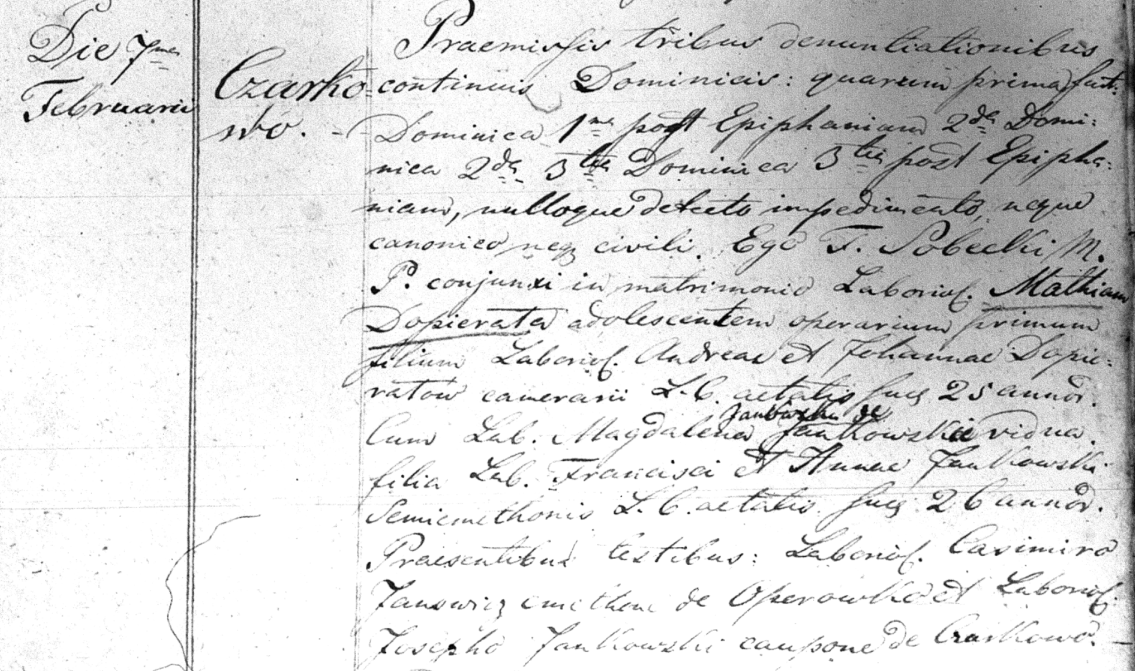 Die 7ma
Februarii
Czarko-
wo.
Praemissis tribus denuntiationibus
continuis Dominicis: quarum prima fuit.
Dominica 1ma post Epiphaniam 2da Domi-
nica 2da 3tia Dominica 3tia post Epipha-
niam, nulloque detecto impedimento, neque
canonico neq civili. Ego F. Sobecki M.
P. conjunxi in matrimonio Laborios. Mathiam
Dopierata adolescentem operarium primum
filium Laborios. Andreae et Johannae Dopie-
ratow camerarii L. C. aetatis suae 25 annor.
Cum Lab. Magdalena Jankowskie vidua
de
filia Lab. Francisci et Annae Jankowski
Semicmethonis L. C. aetatis suae 26 annor.
Praesentibus testibus: Laborios. Casimiro
cmethone de Operowko et Laborios.
Josepho Jankowski caupone de Czarkowo.